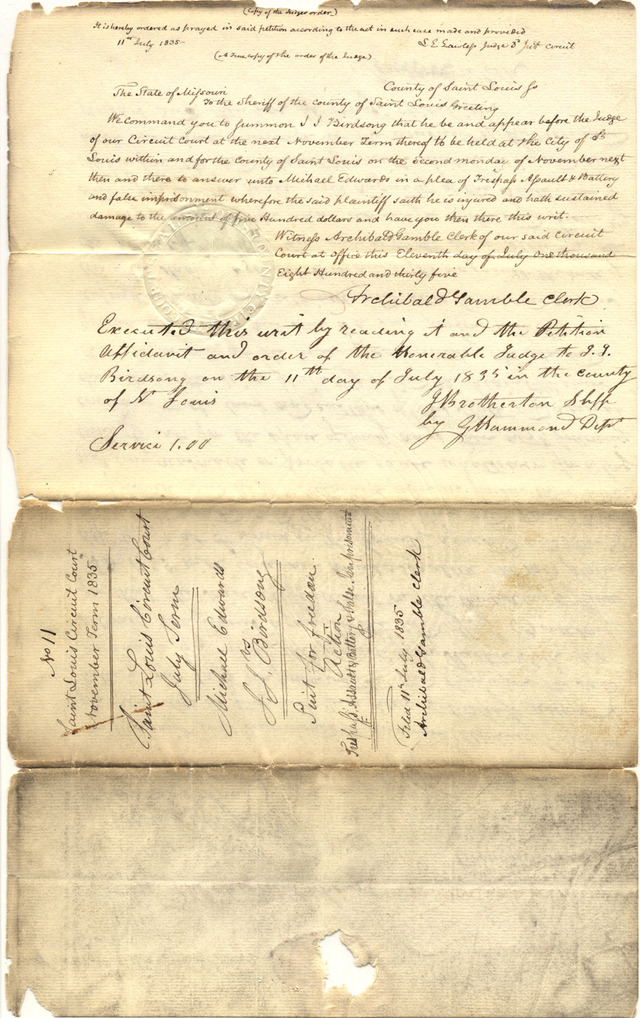 (Copy of the Judges order.)
It is hereby ordered as prayed in said petition according to the act in such case made and provided
11th July 1835 L E Lawless Judge 3d Jud Circuit
(A True copy of the order of the Judge)
County of Saint Louis Ss
The State of Missouri
To the Sheriff of the county of Saint Louis Greeting
We command you to summon J J Birdsong that he be and appear before the Judge
of our Circuit Court at the next November Term thereof to be held at the City of St
Louis within and for the County of Saint Louis on the second monday of November next
then and there to answer unto Michael Edwards in a plea of Trespass Assault & Battery
and false imprisonment wherefore the said plaintiff saith he is injured and hath sustained
damage to the amount of five Hundred dollars and have you then there this writ.
Witness Archibald Gamble Clerk of our said Circuit
Court at office this Eleventh day of July one thousand
Eight Hundred and thirty five
Archibald Gamble Clerk
Executed this writ by reading it and the Petition
Affidavit and order of the Honerable Judge to J.J.
Birdsong on the 11th day of July 1835 in the county
of St Louis J Brotherton Shff
by G Hammond Depy
Service 1.00
No 11
Saint Louis Circuit Court
November Term 1835
Saint Louis Circuit Court
July Term
Michael Edwards
vs
J J. Birdsong
Suit for freedom
Action
Trespass Assault & Battery & False Imprisonment
Filed 11th July 1835
Archibald Gamble Clerk